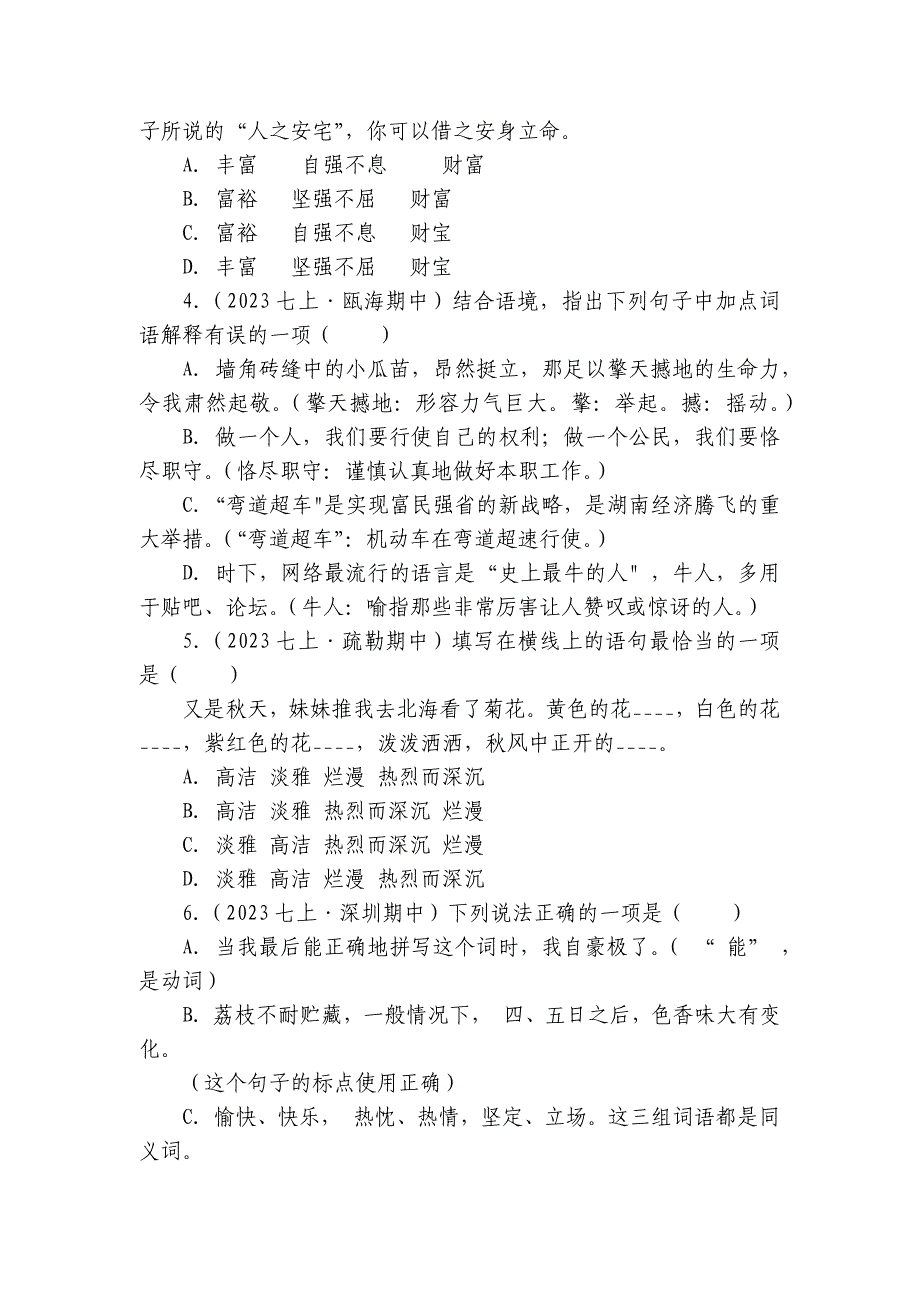 子所说的“人之安宅”，你可以借之安身立命。
A. 丰富　自强不息　财富
B. 富裕　坚强不屈　财富
C. 富裕　自强不息　财宝
D. 丰富　坚强不屈　财宝
4.（2023七上·瓯海期中）结合语境，指出下列句子中加点词
语解释有误的一项（　　）
A. 墙角砖缝中的小瓜苗，昂然挺立，那足以擎天撼地的生命力，
令我肃然起敬。（擎天撼地：形容力气巨大。擎：举起。撼：摇动。）
B. 做一个人，我们要行使自己的权利；做一个公民，我们要恪
尽职守。（恪尽职守：谨慎认真地做好本职工作。）
C. “弯道超车"是实现富民强省的新战略，是湖南经济腾飞的重
大举措。（“弯道超车”：机动车在弯道超速行使。）
D. 时下，网络最流行的语言是“史上最牛的人"，牛人，多用
于贴吧、论坛。（牛人：喻指那些非常厉害让人赞叹或惊讶的人。）
5.（2023七上·疏勒期中）填写在横线上的语句最恰当的一项
是（　　）
又是秋天，妹妹推我去北海看了菊花。黄色的花____，白色的花
____，紫红色的花____，泼泼洒洒，秋风中正开的____。
A. 高洁 淡雅 烂漫 热烈而深沉
B. 高洁 淡雅 热烈而深沉 烂漫
C. 淡雅 高洁 热烈而深沉 烂漫
D. 淡雅 高洁 烂漫 热烈而深沉
6.（2023七上·深圳期中）下列说法正确的一项是（　　）
A. 当我最后能正确地拼写这个词时，我自豪极了。（ “ 能” ，
是动词）
B. 荔枝不耐贮藏，一般情况下， 四、五日之后，色香味大有变
化。
（这个句子的标点使用正确）
C. 愉快、快乐， 热忱、热情，坚定、立场。这三组词语都是同
义词。